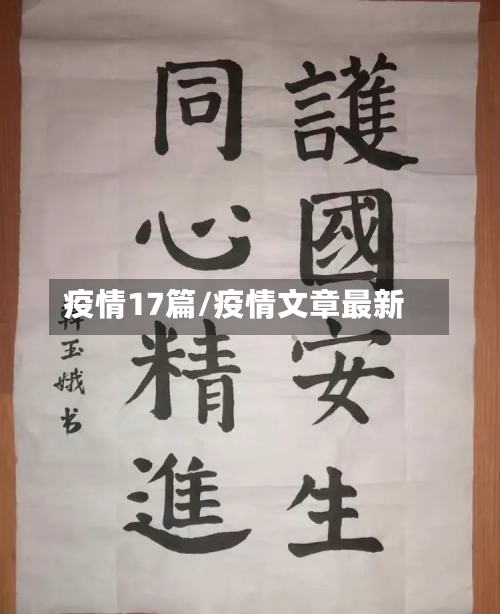 護國安生
同心精進
玉娥书
疫情17篇/疫情文章最新